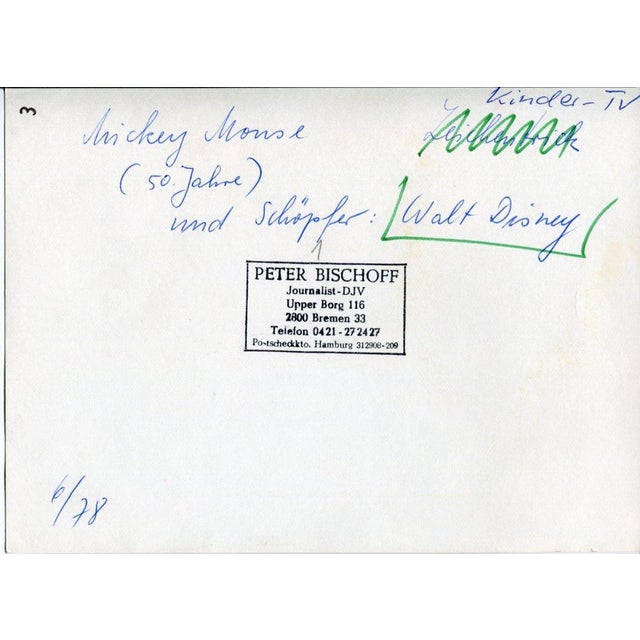 3
Kinder-TV
Mickey Mouse Zeichentrick
(50. Jahre)
und Schöpfer: Walt Disney
1
PETER BISCHOFF
Journalist-DJV
Upper Borg 116
2800 Bremen 33
Telefon 0421-272427
Postscheckkto. Hamburg 312908-209
6/78